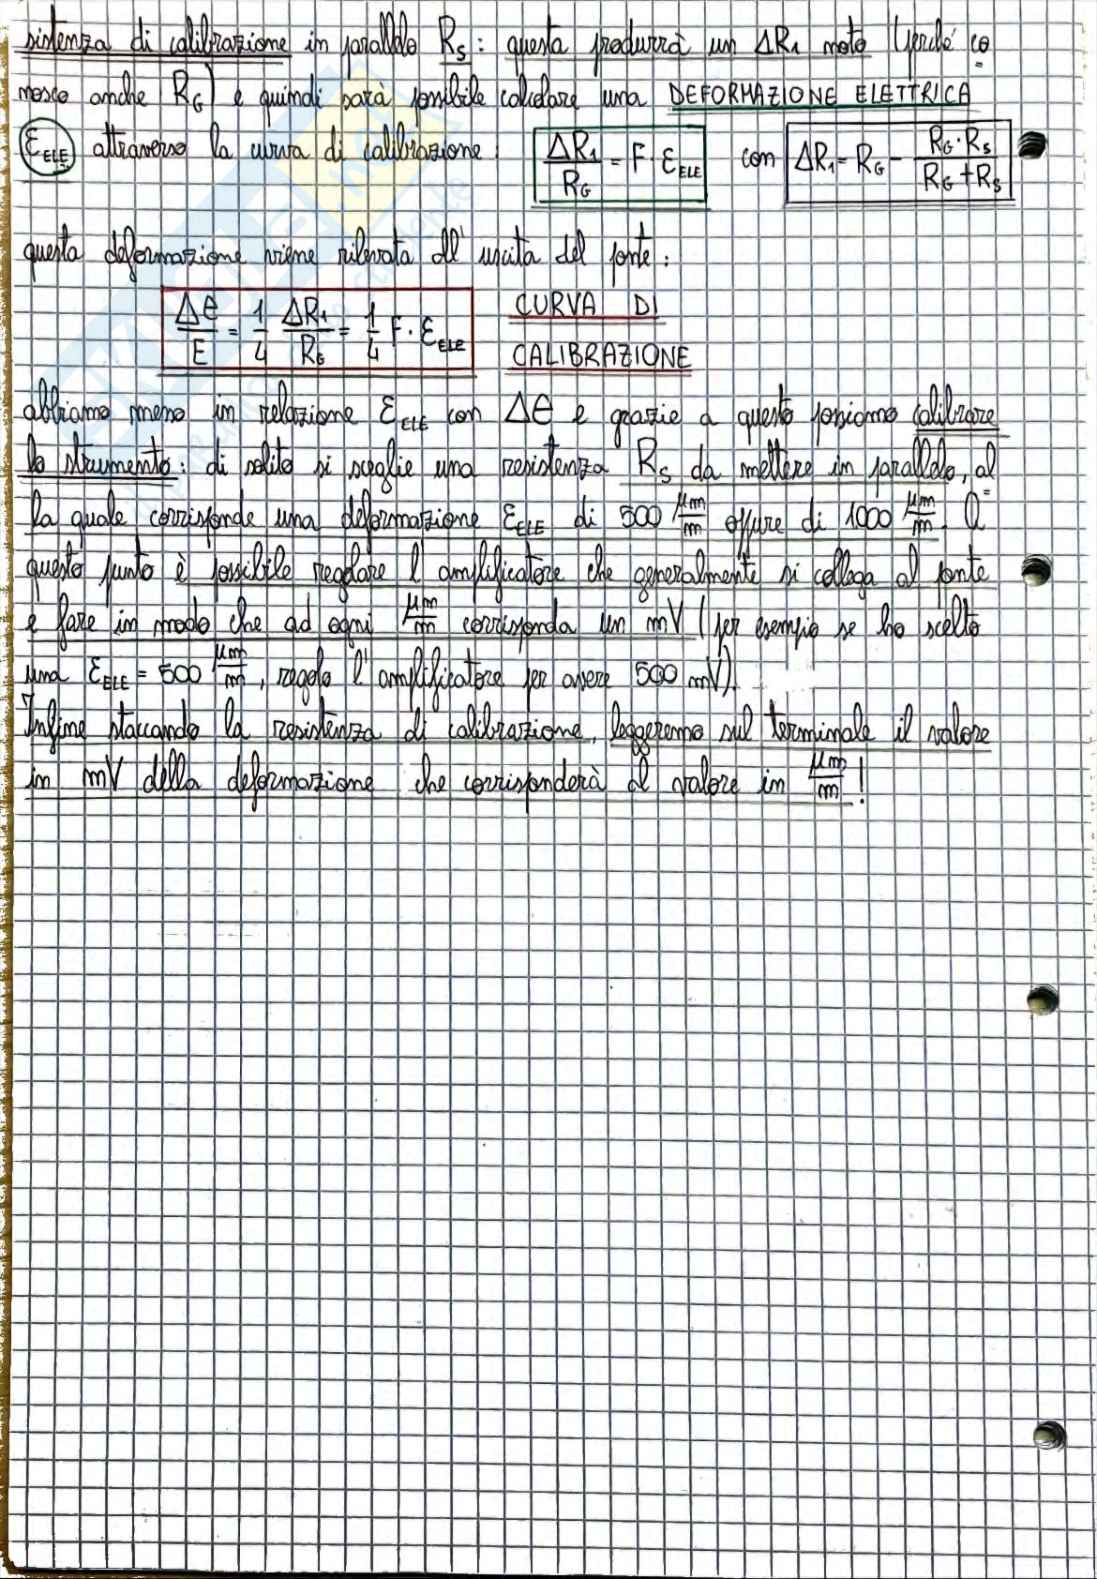 sistenza di calibrazione in parallelo R_S: questa produrrà un ΔR₁ noto (perché co
nosco anche R_G) e quindi sarà possibile calcolare una DEFORMAZIONE ELETTRICA
ε_ELE attraverso la curva di calibrazione: ΔR₁/R_G = F · ε_ELE con ΔR₁ = R_G - R_G·R_S/(R_G+R_S)
questa deformazione viene rilevata all'uscita del ponte:
Δe/E = 1/4 ΔR₁/R_G = 1/4 F · ε_ELE CURVA DI
CALIBRAZIONE
abbiamo messo in relazione ε_ELE con Δe e grazie a questo possiamo calibrare
lo strumento: di solito si sceglie una resistenza R_S da mettere in parallelo, al
la quale corrisponde una deformazione ε_ELE di 500 μm/m oppure di 1000 μm/m. A
questo punto è possibile regolare l'amplificatore che generalmente si collega al ponte
e fare in modo che ad ogni μm/m corrisponda un mV (per esempio se ho scelto
una ε_ELE = 500 μm/m, regolo l'amplificatore per avere 500 mV).
Infine staccando la resistenza di calibrazione, leggeremo sul terminale il valore
in mV della deformazione che corrisponderà al valore in μm/m!